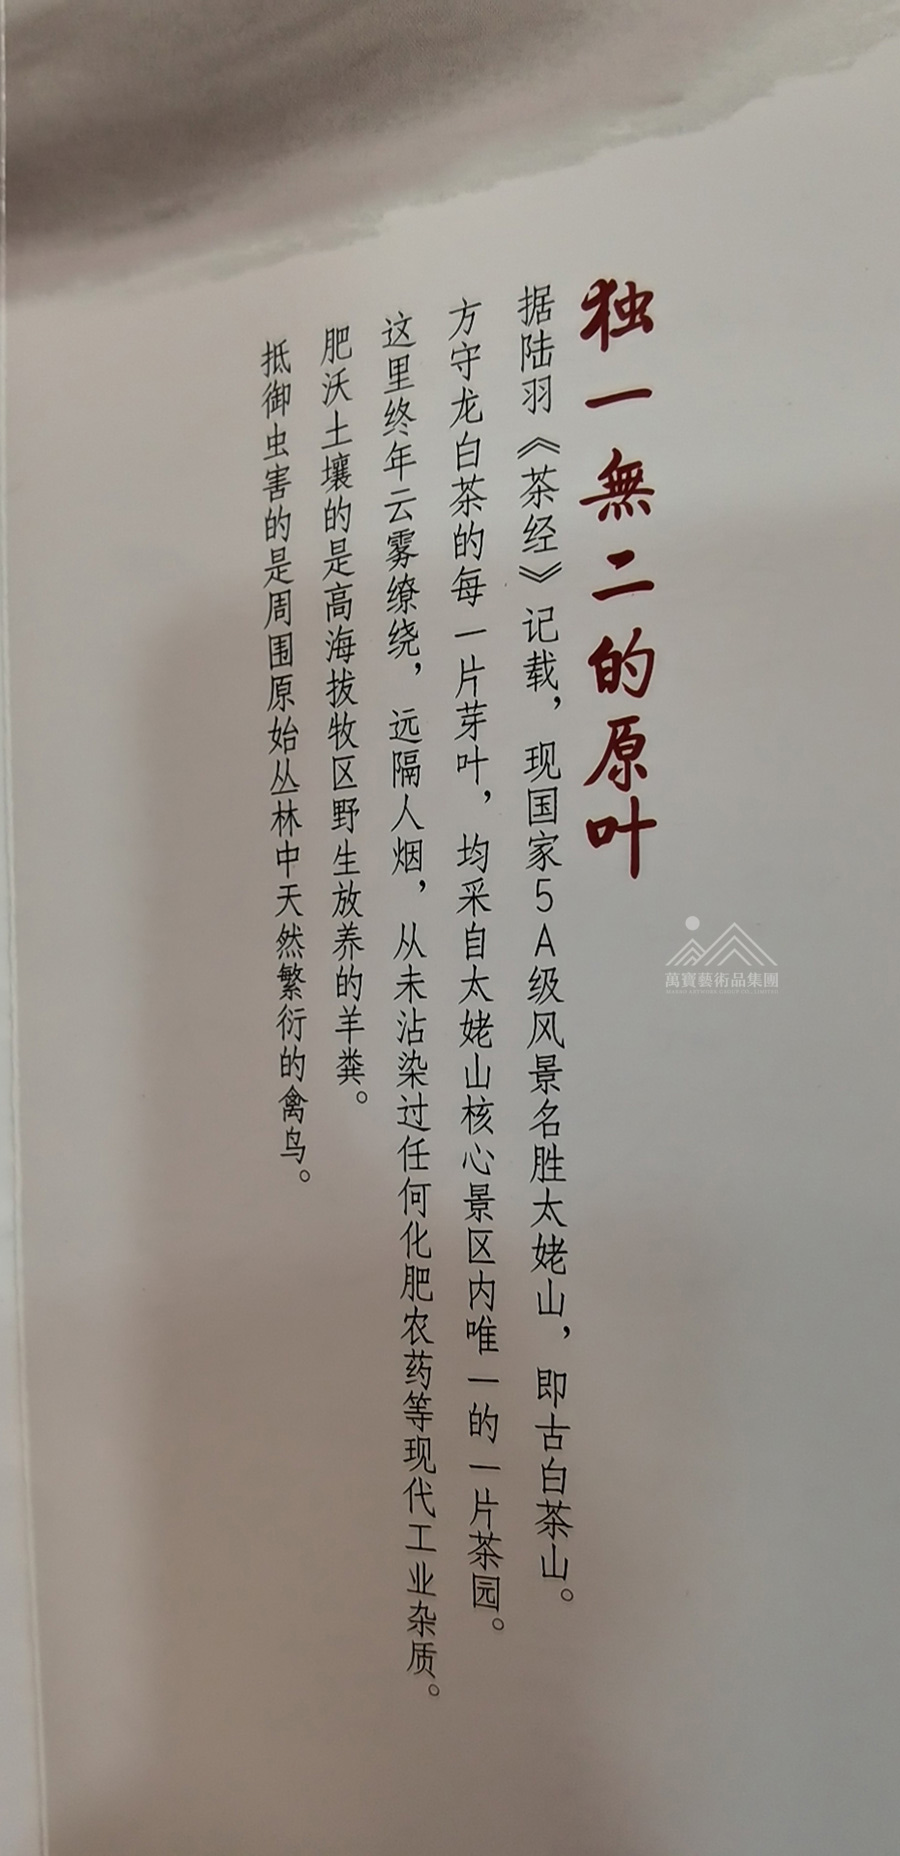 独一無二的原叶
据陆羽《茶经》记载，现国家5A级风景名胜太姥山，即古白茶山。
方守龙白茶的每一片芽叶，均采自太姥山核心景区内唯一的一片茶园。
这里终年云雾缭绕，远隔人烟，从未沾染过任何化肥农药等现代工业杂质。
肥沃土壤的是高海拔牧区野生放养的羊粪。
抵御虫害的是周围原始丛林中天然繁衍的禽鸟。
萬寶藝術品集團